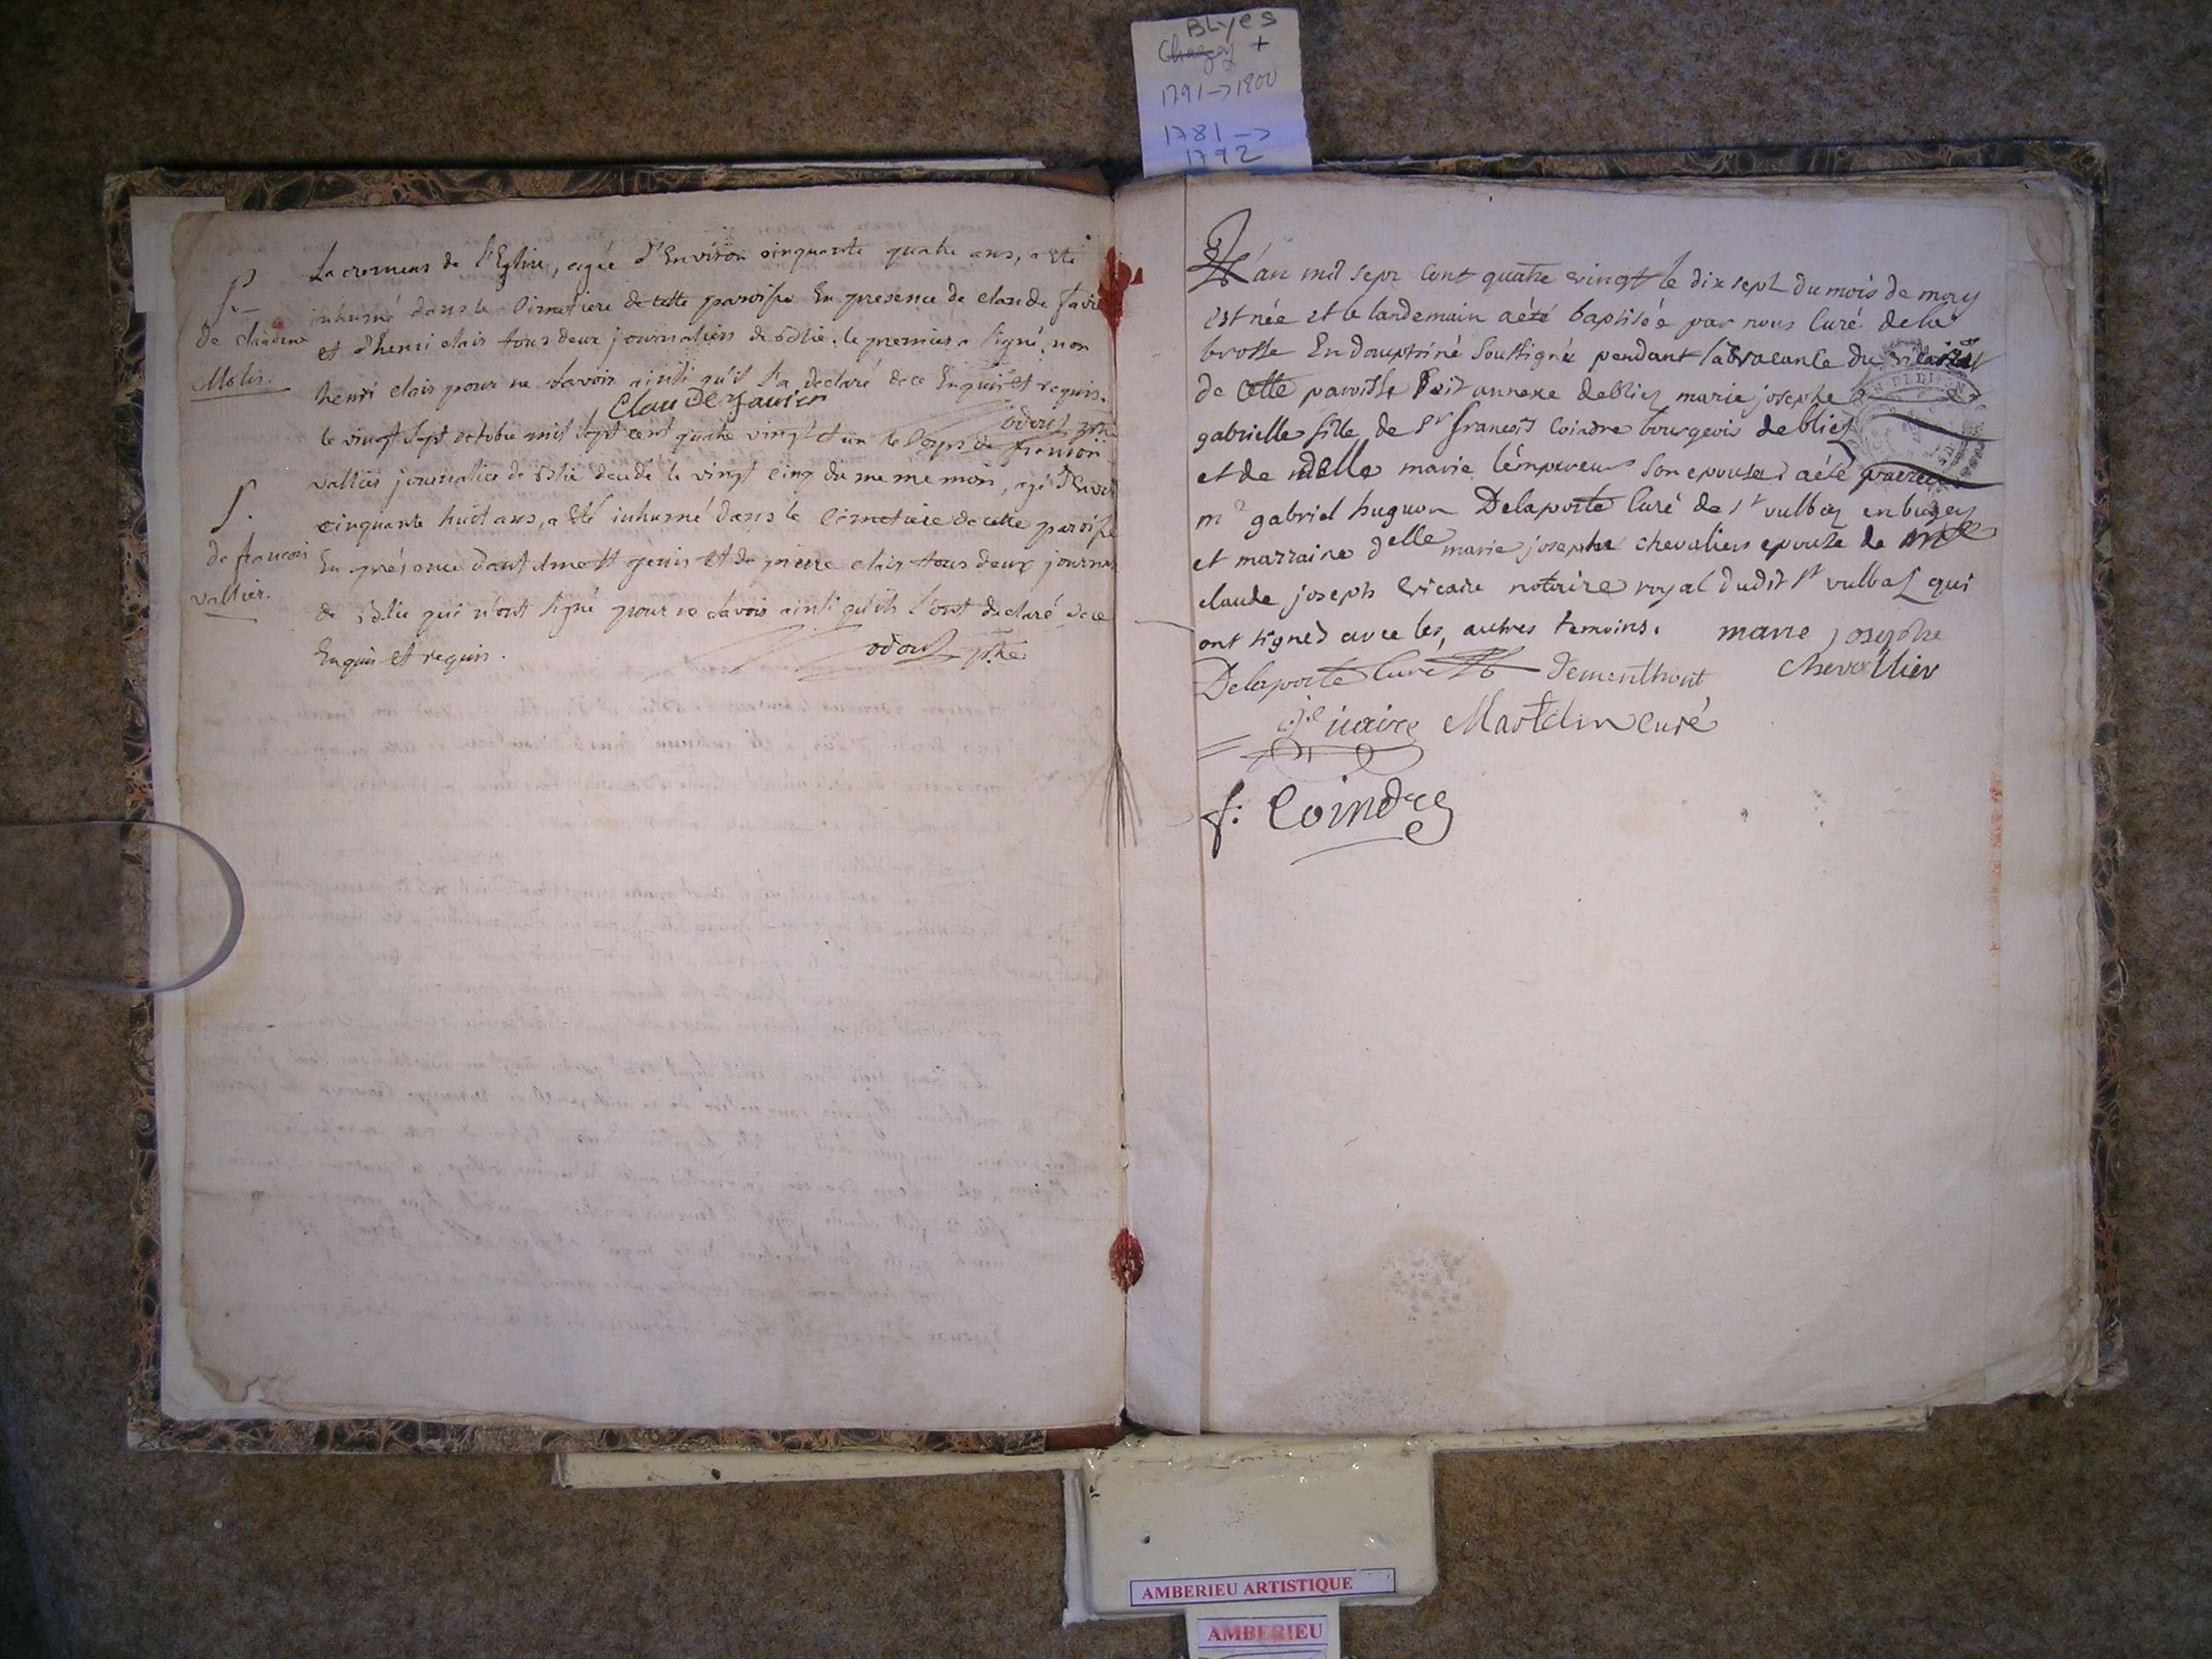 BLyes
Chazey +
1791 -> 1800
1781 ->
1792
Sacremens de l'Eglise, agée d'Environ cinquante quatre ans, a Eté
inhumé dans le Cimetiere de cette paroisse En presence de claude favier
et d'henri clais tous deux journaliers de la signé, non
henri clais pour ne savoir ainsi qu'il l'a declaré de ce Enquis et requis.
Claude favier
odoux ptre
S.
de claudine
Molis.
le vingt sept octobre mil sept cent quatre vingt et un le Corps de francois
vallier journalier de decedé le vingt cinq du meme mois, agé d'Environ
cinquante huit ans, a Eté inhumé dans le Cimetiere de cette paroisse
En présence et de pierre clais tous deux journ
de qui n'ont signé pour ne savoir ainsi qu'ils l'ont declaré de ce
Enquis et requis.
odoux ptre
S.
de francois
vallier.
L'an mil sept cent quatre vingt le dix sept du mois de may
est née et le landemain a été baptisée par nous Curé de la
brosse En dauphiné soussigné pendant la vacance du vicariat
de Cette paroisse soit annexe de bliez marie josephe
gabrielle fille de Sr francois Coindre bourgeois de bliez
et de delle marie lémpereur son epouse a été parrein
mr gabriel huguon Delaporte Curé de St vulbaz en bugey
et marraine delle marie josephe chevaliers epouse de
claude joseph vicaire notaire royal dudit St vulbaz qui
ont signés avec les autres temoins. marie josephe
Delaporte Curé dementhont chevallier
vicaire Martelin curé
f: Coindre
AMBERIEU ARTISTIQUE
AMBERIEU